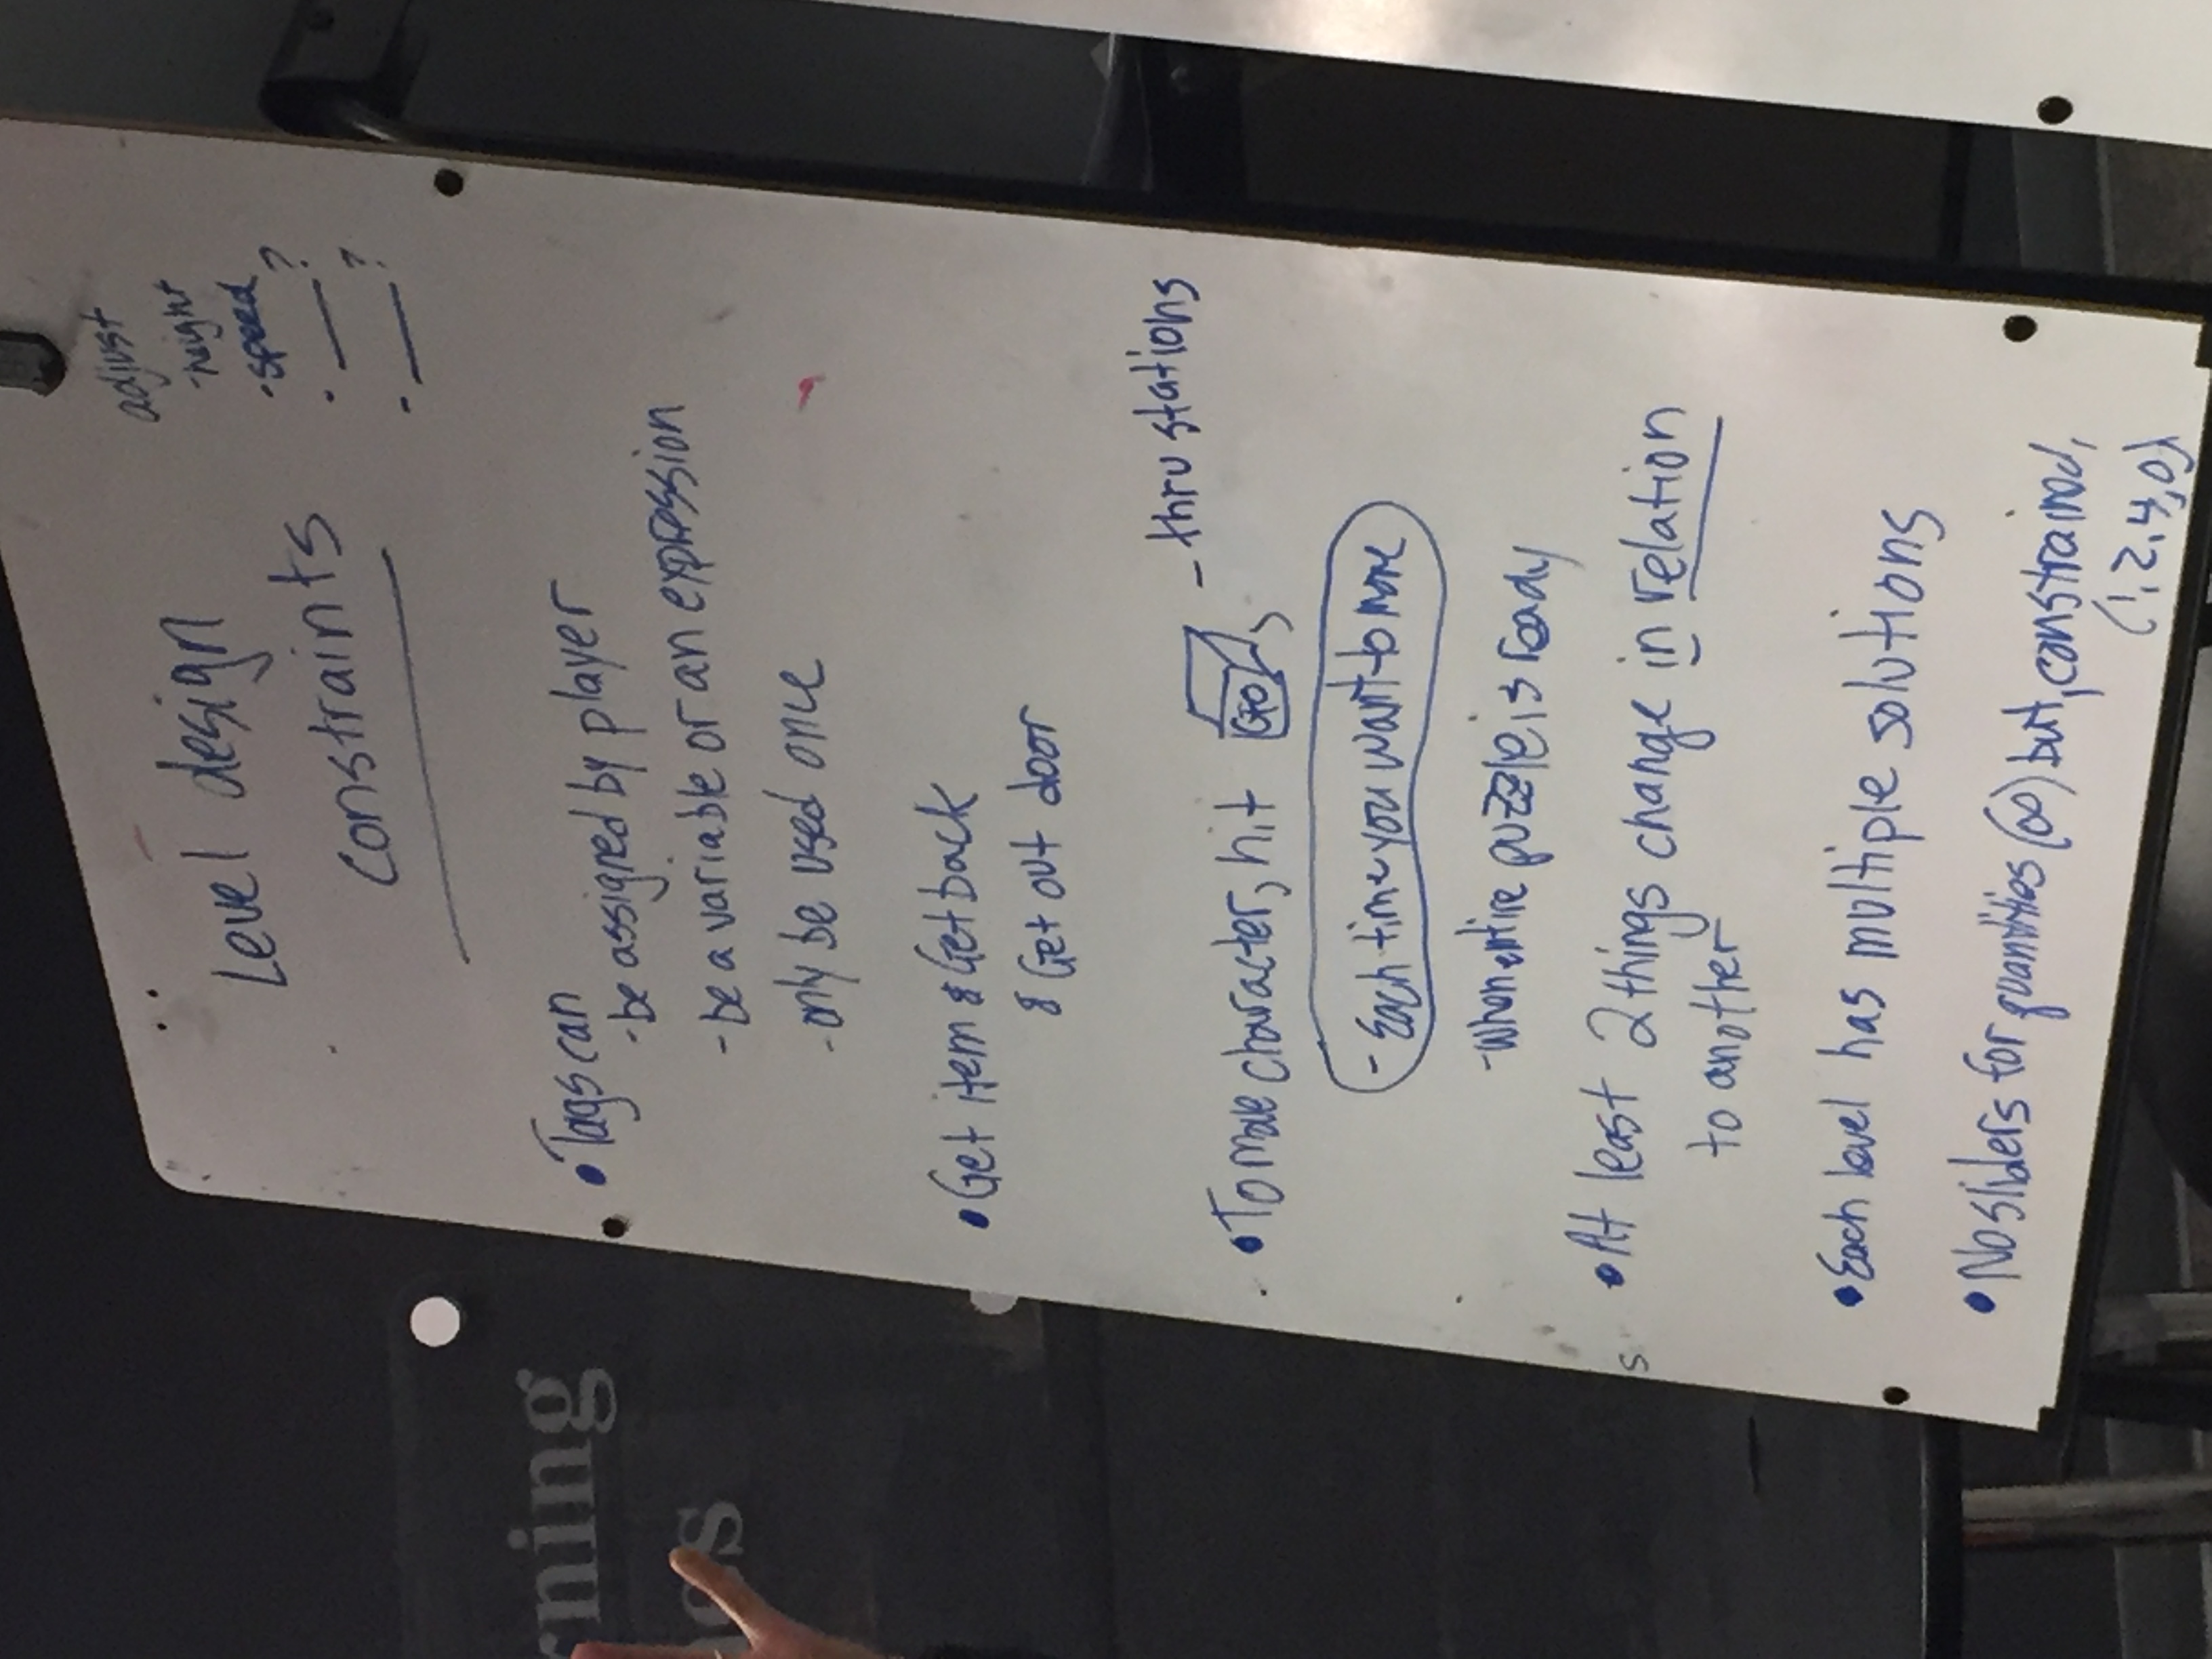 Level design
constraints
adjust
-height
-speed
- ___?
- ___?
• Tags can
- be assigned by player
- be a variable or an expression
- only be used once
• Get item & Get back
& Get out door
• To move character, hit GO,
- thru stations
- Each time you want to move
- when entire puzzle is ready
• At least 2 things change in relation
to another
• Each level has multiple solutions
• No sliders for quantities (∞) but, constrained,
(1,2,4,0)
rning
s